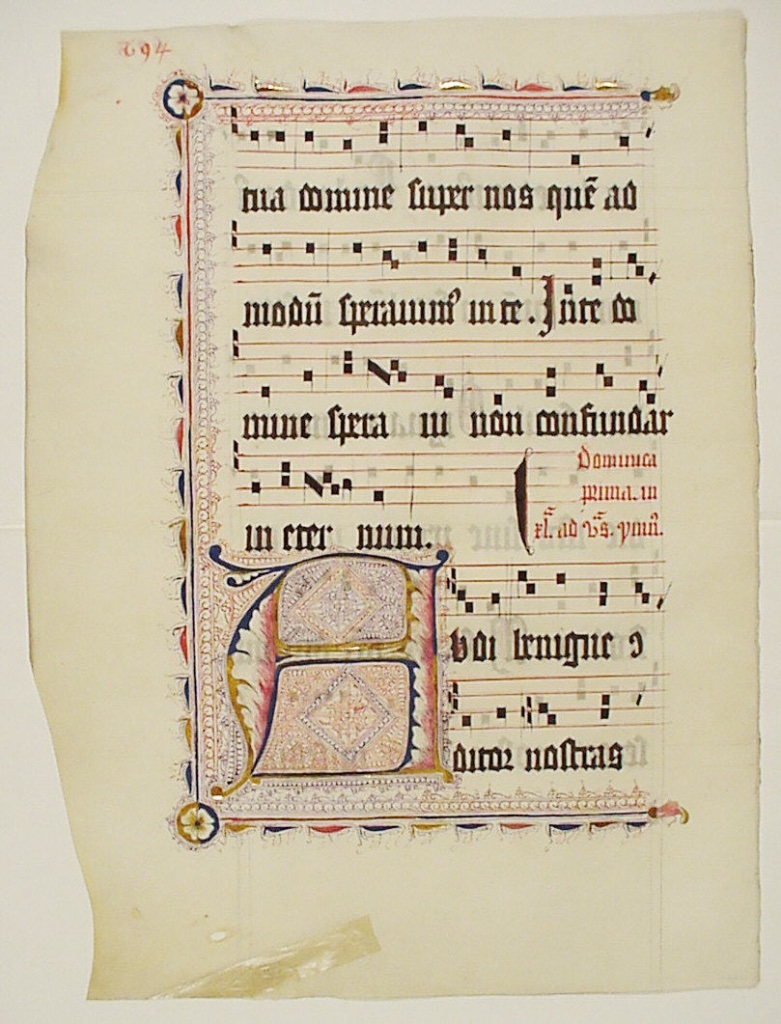 294
tua domine super nos quē ad
modū sperauimꝰ in te. In te do
mine spera ui non confundar
in eter num.
Dominica
prima. in
xl. ad vs̄. ymn̄.
Audi benigne ↄ
ditor nostras